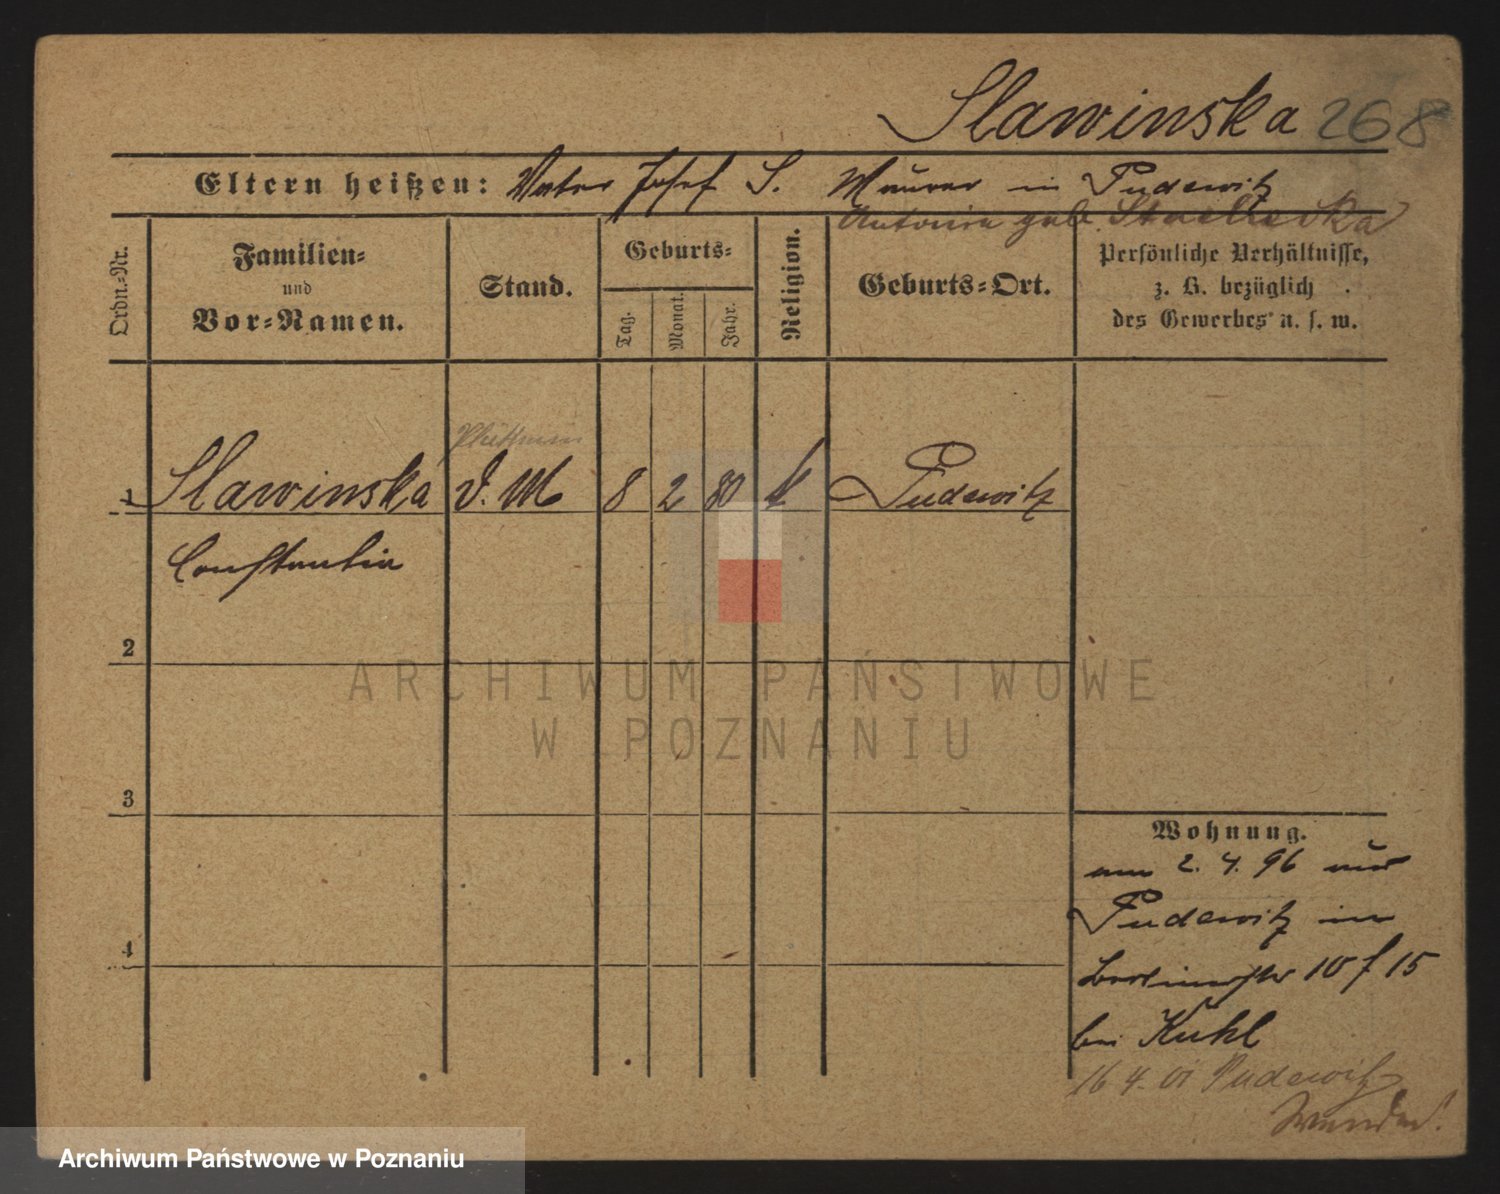 Slawinska 268
Eltern heißen: Vater Josef S. Maurer in Pudewitz
Antonia geb.
Ordn.-Nr.
Familien-
und
Vor-Namen.
Stand.
Geburts-
Tag.
Monat.
Jahr.
Religion.
Geburts-Ort.
Persönliche Verhältnisse,
z. B. bezüglich
des Gewerbes u. s. w.
1 Slawinska D. M 8 2 80 k Pudewitz
Constantia
2
3
4
Wohnung.
am 2. 4. 96 aus
Pudewitz in
Berlinerstr 10 f 15
bei Kuhl
16 4. 01 Pudewitz
ARCHIWUM PAŃSTWOWE
W POZNANIU
Archiwum Państwowe w Poznaniu